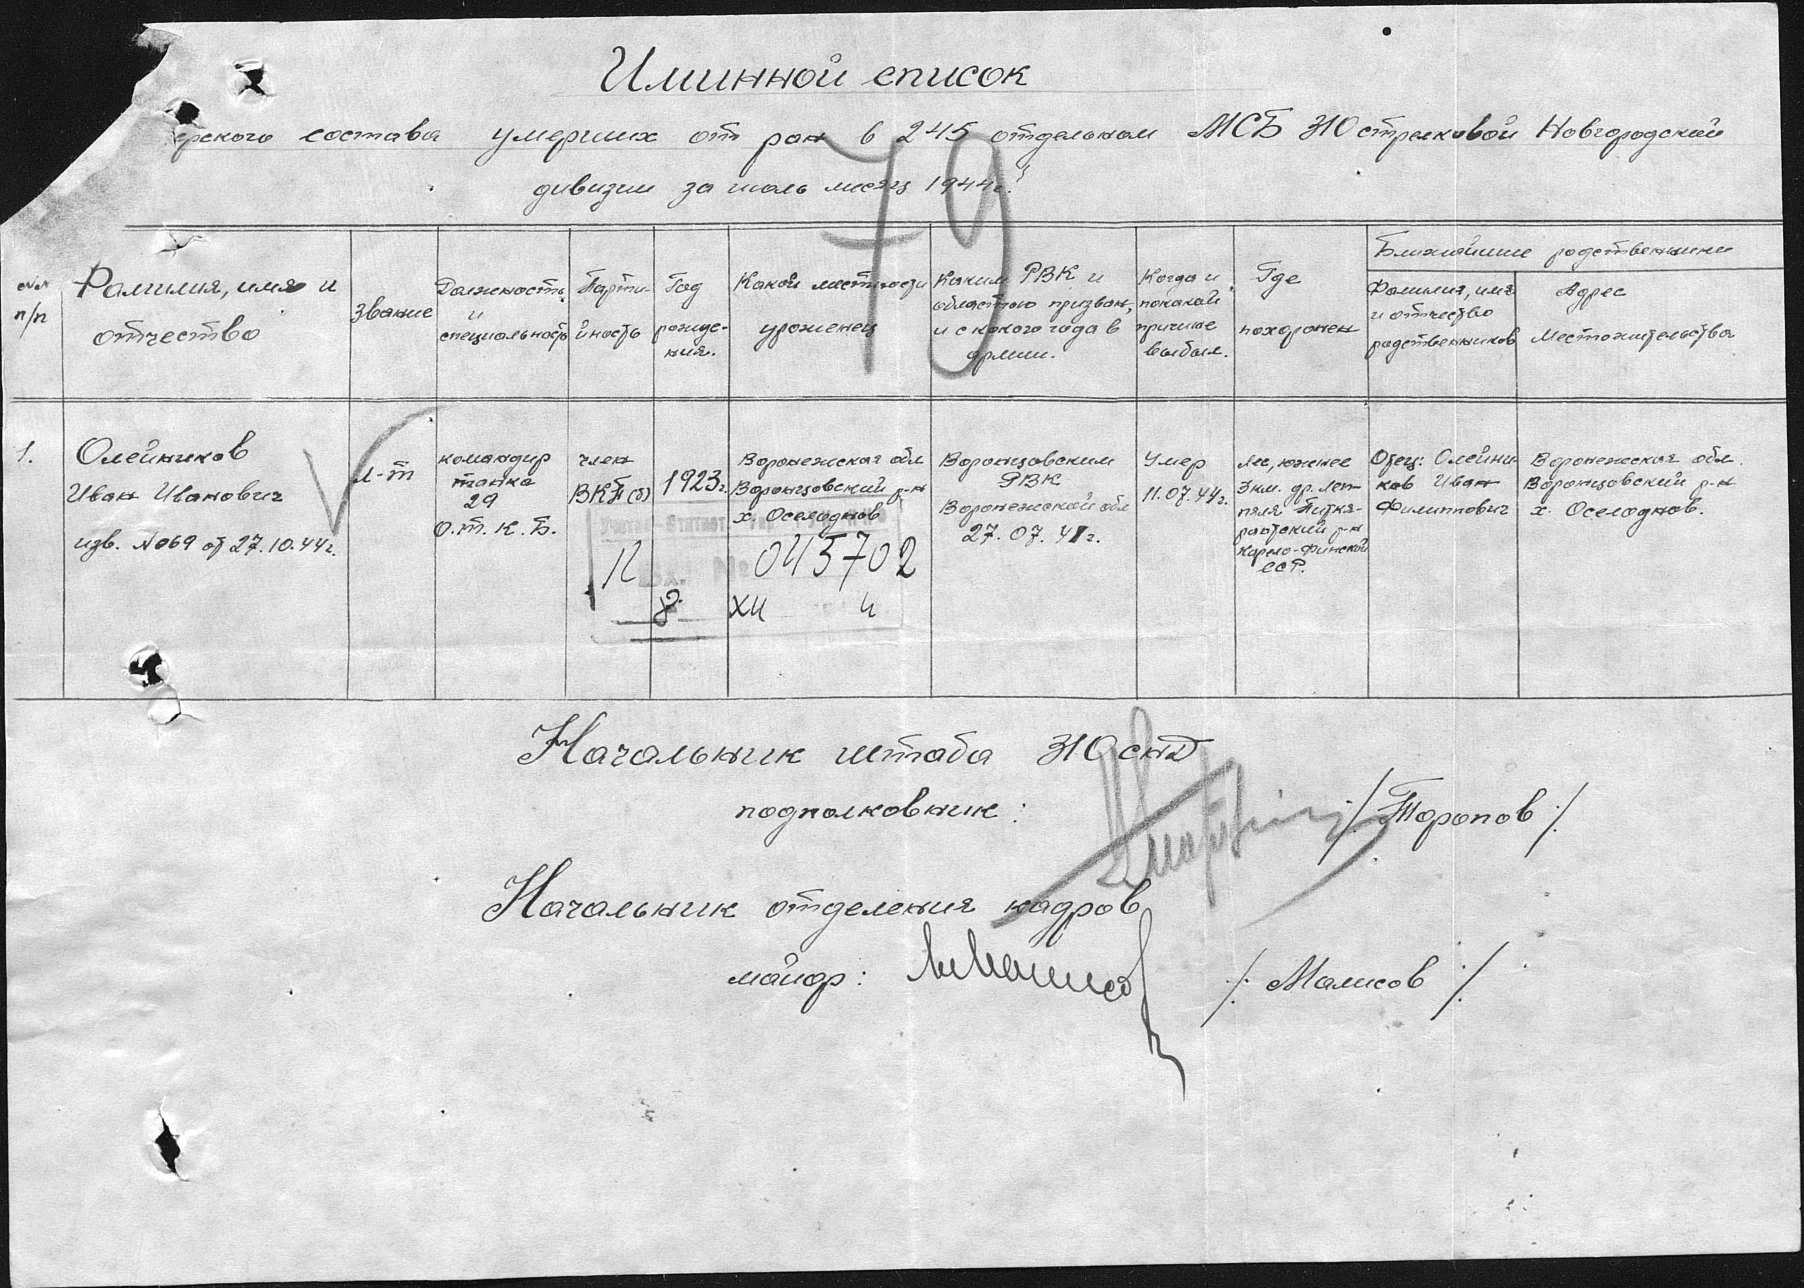 Именной список
ерского состава умерших от ран в 245 отдельном МСБ 310 стрелковой Новгородской
дивизии за июль месяц 1944г.
79
№№ п/п
Фамилия, имя и отчество
Звание
Должность и специальность
Партийность
Год рождения.
Какой местности уроженец
Каким РВК и областью призван, и с какого года в армии.
Когда и по какой причине выбыл.
Где похоронен
Ближайшие родственники
Фамилия, имя и отчество родственников
Адрес Местожительства
1.
Олейников
Иван Иванович
изв. №069 от 27.10.44г.
л-т
командир
танка
29
о.т.к.б.
член
ВКП(б)
1923г.
Воронежская обл
Воронцовский р-н
х. Оселоднов
Воронцовским
РВК
Воронежской обл
27.07.41г.
Умер
11.07.44г.
Лес, южнее
3 км. др. Леп-
пяля Питкя-
рантский р-н
Карело-Финской
ССР.
Отец: Олейни-
ков Иван
Филиппович
Воронежская обл.
Воронцовский р-н
х. Оселоднов.
Вх. № 045702
8 XII 4
Начальник штаба 310 сНД
подполковник: /Торопов/
Начальник отделения кадров
майор: /Малисов/